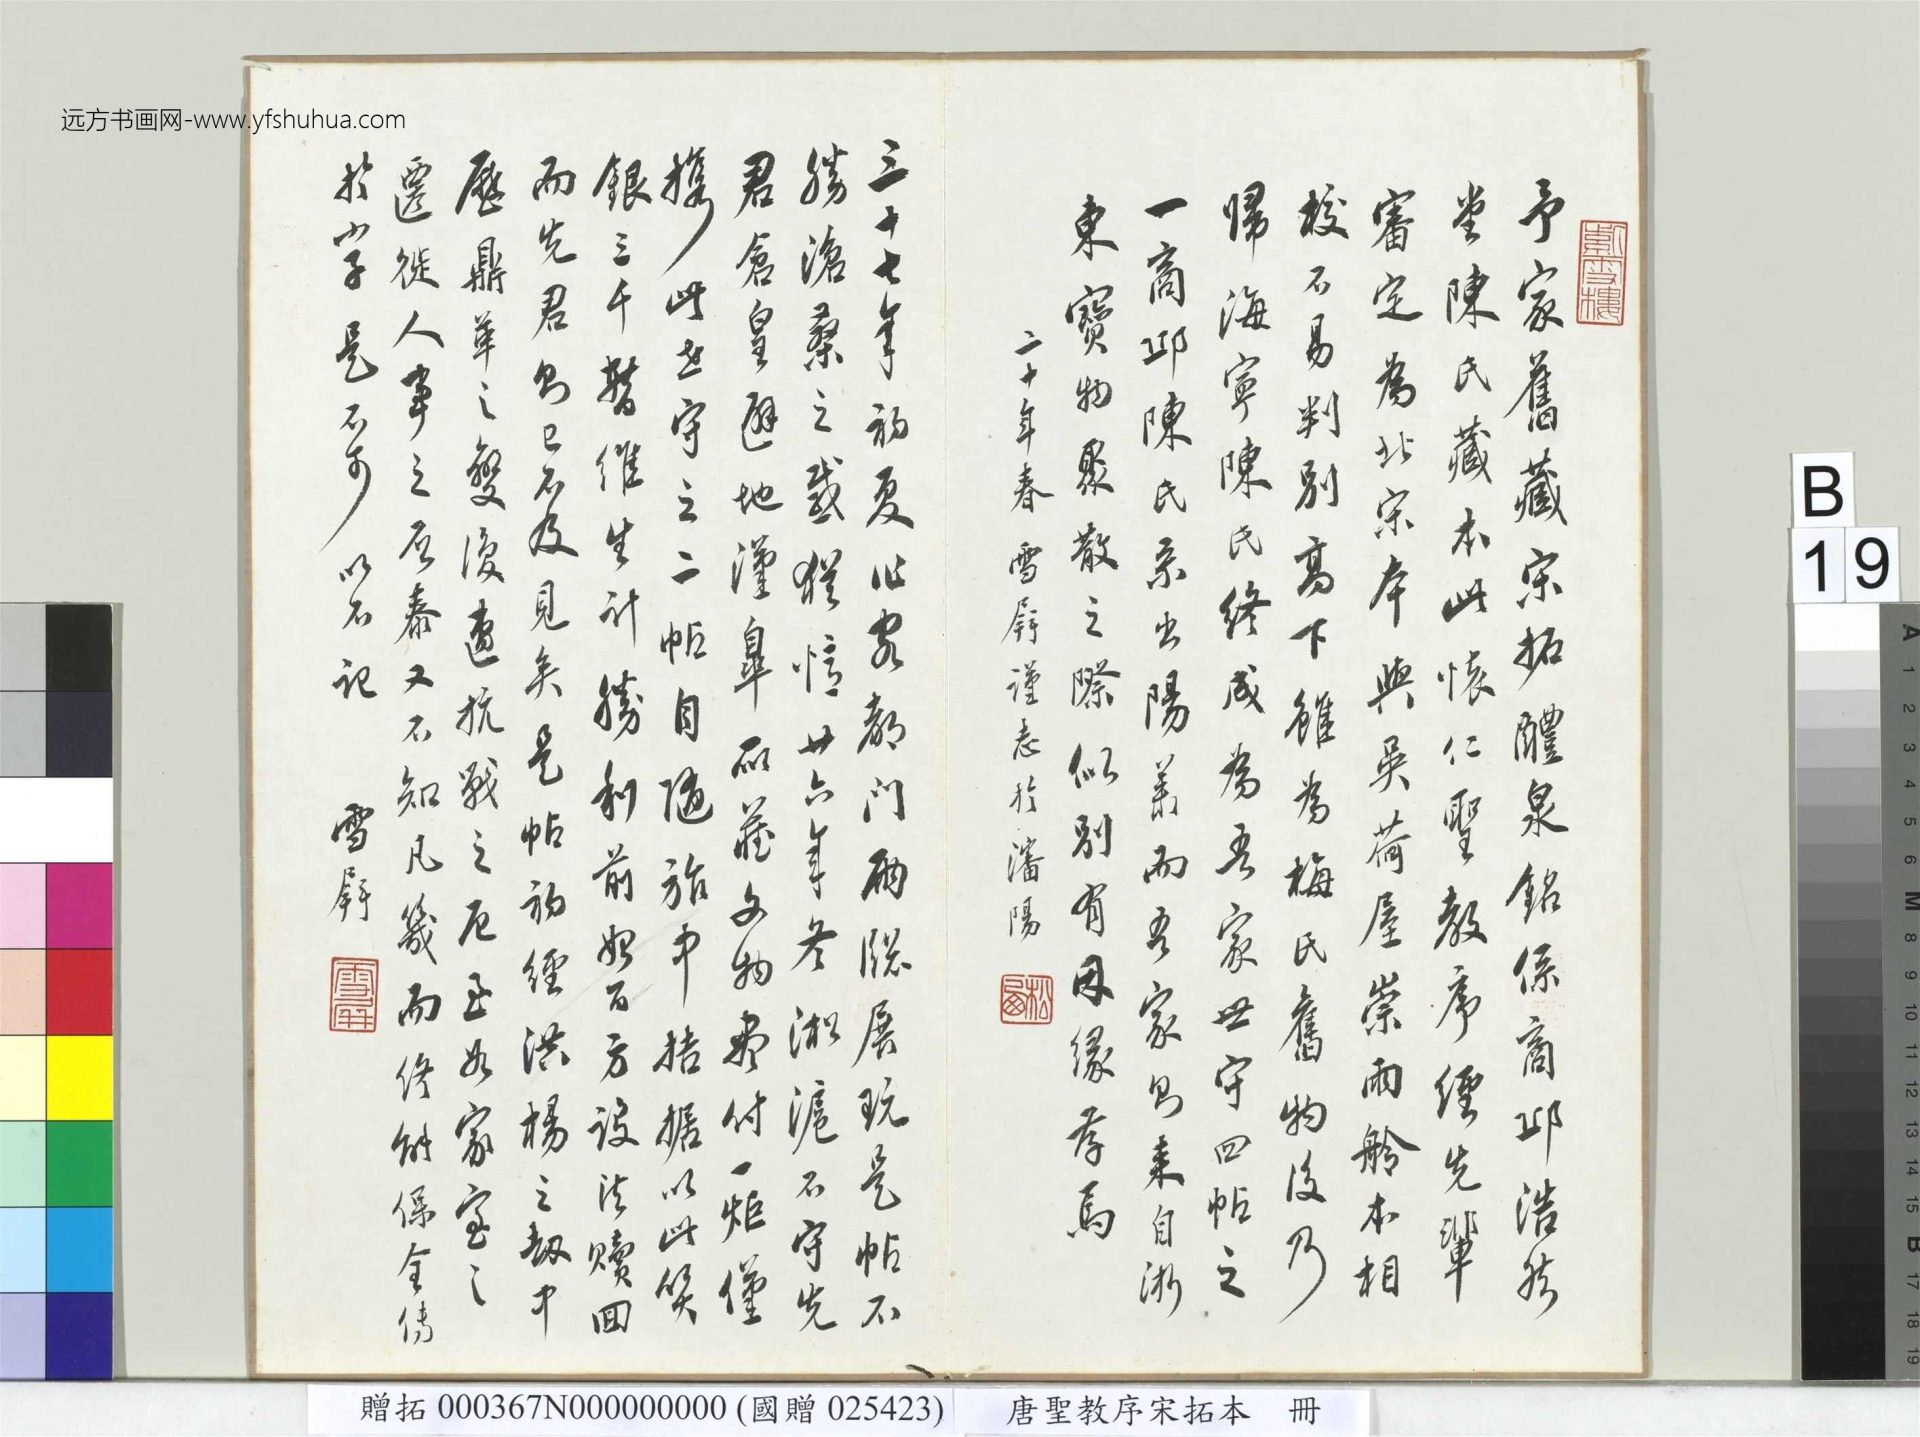 远方书画网-www.yfshuhua.com
予家舊藏宋拓醴泉銘係商邱浩然
堂陳氏藏本此懷仁聖教序經先輩
審定為北宋本與吳荷屋崇雨舲本相
校不易判別高下雖為梅氏舊物後乃
歸海寧陳氏終成為吾家世守四帖之
一商邱陳氏系出陽羨而吾家則來自浙
東寶物聚散之際似別有因緣存焉
二十年春 雪屏謹志於瀋陽
三十七年初夏作客都門雨牕展玩是帖不
勝滄桑之感猶憶廿六年冬淞滬不守先
君倉皇避地漢皋所藏文物盡付一炬僅
攜此世守之二帖自隨旅中拮据以此質
銀三千暫維生計勝利前始百方設法贖回
而先君則已不及見矣是帖初經洪楊之劫中
歷鼎革之變復遭抗戰之厄至如家室之
遷徙人事之否泰又不知凡幾而終能保全傳
於小子是不可以不記
雪屏
雪屏
B
19
贈拓 000367N000000000 (國贈 025423)
唐聖教序宋拓本 冊